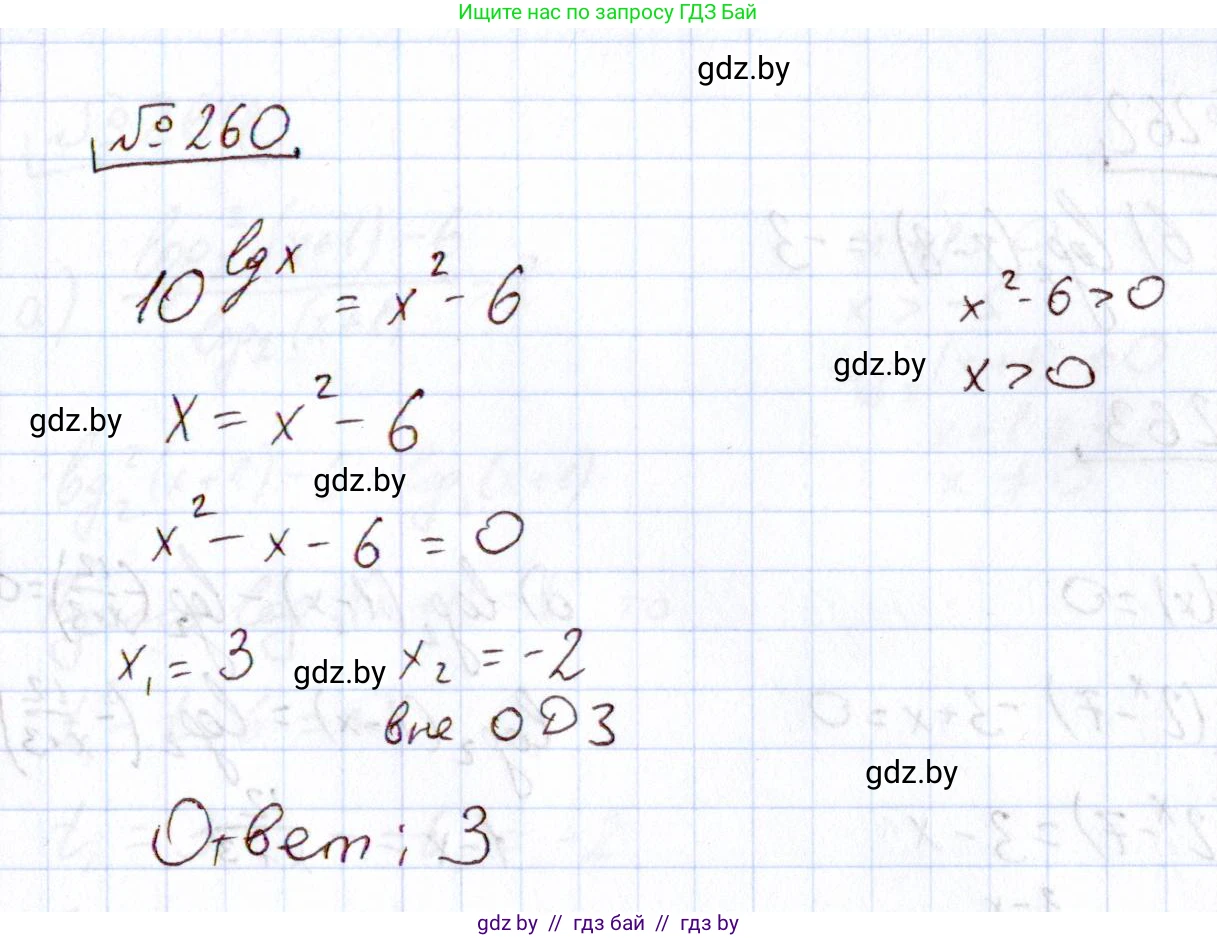 Ищите нас по запросу ГДЗ Бай
gdz.by
№ 260
10^{lg x} = x² - 6
x² - 6 > 0
gdz.by
x > 0
gdz.by
x = x² - 6
gdz.by
x² - x - 6 = 0
x₁ = 3
gdz.by
x₂ = -2
вне ОДЗ
gdz.by
Ответ: 3
gdz.by // гдз бай // гдз by